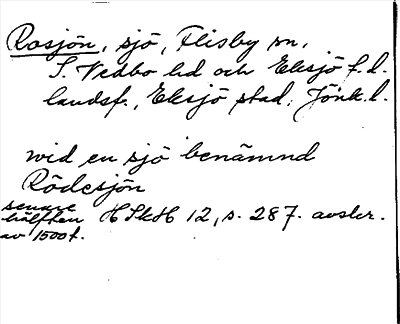 Rosjön, sjö, Flisby sn,
S. Vedbo hd och Eksjö f.d.
landsf., Eksjö stad, Jönk.l.
wid en sjö benämnd
Rödesjön
senare
hälften HSkH 12, s. 287. avskr.
av 1500t.